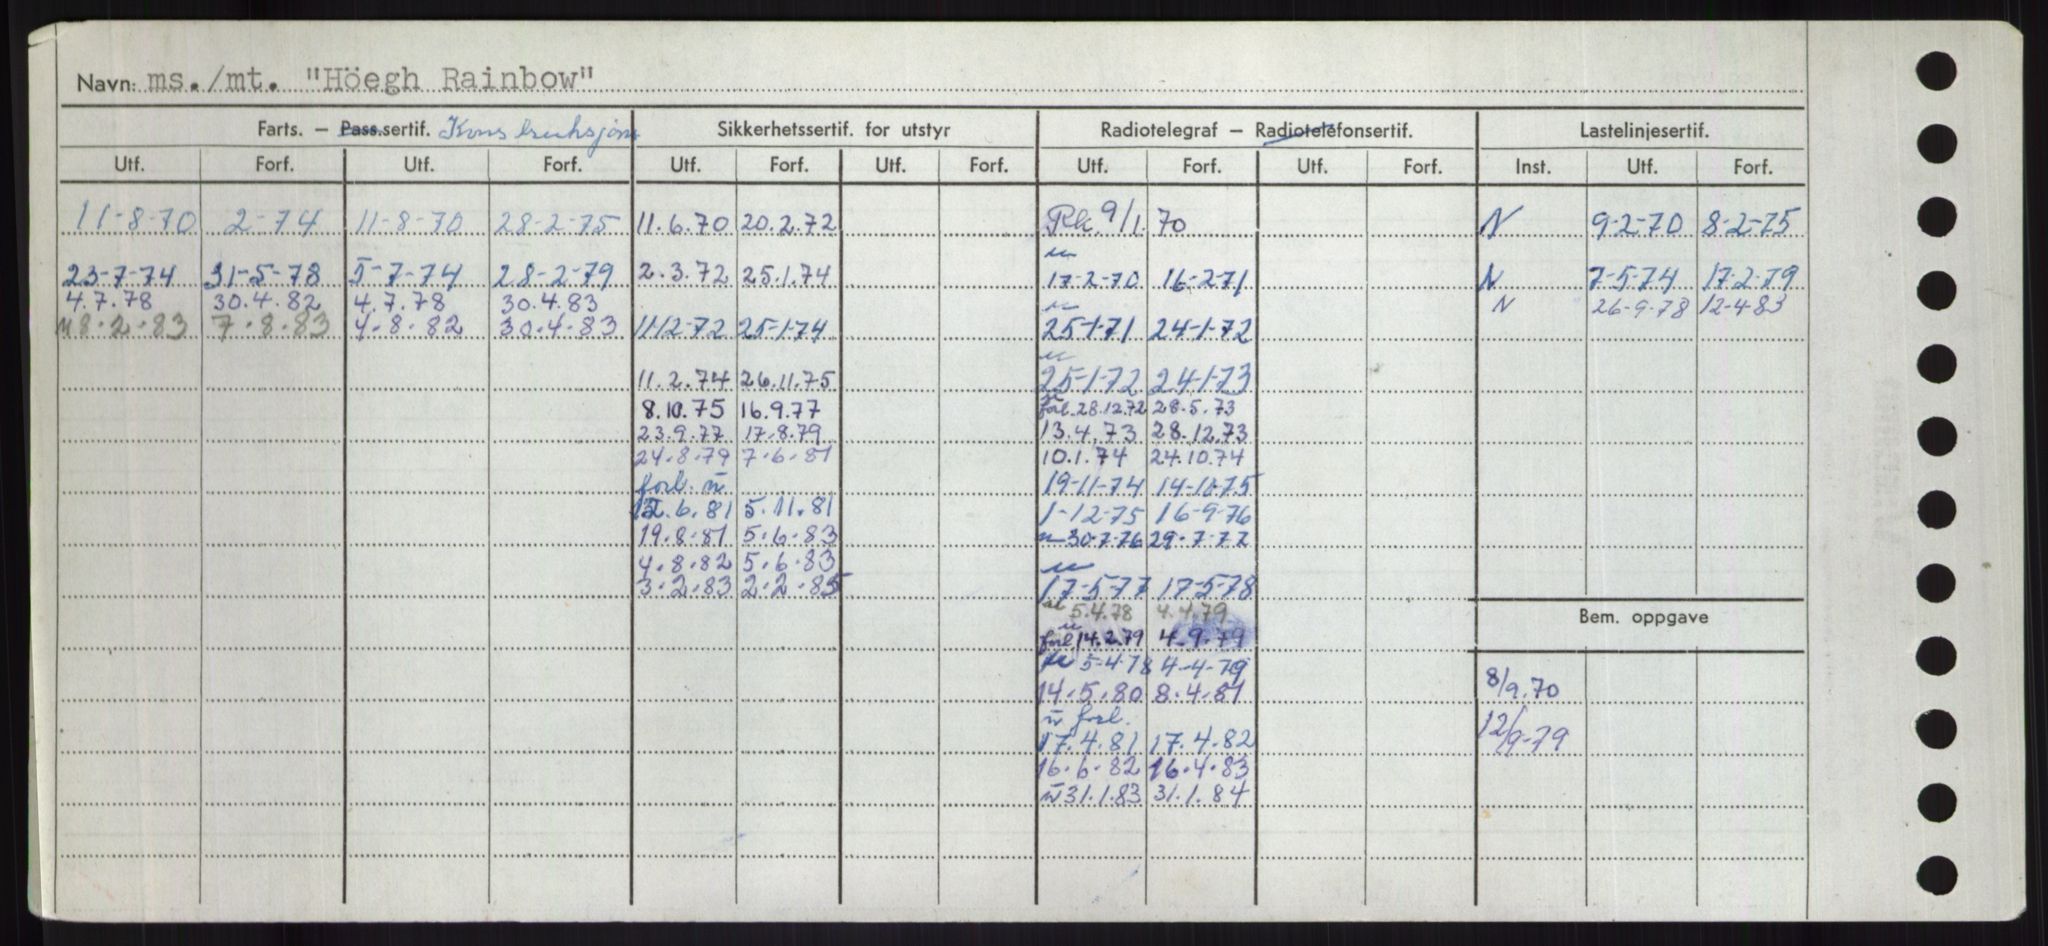 Navn: ms./mt. "Höegh Rainbow"
Farts. – Pass.sertif. Konstruksjons Sikkerhetssertif. for utstyr Radiotelegraf – Radiotelefonsertif. Lastelinjesertif.
Utf. Forf. Utf. Forf. Utf. Forf. Utf. Forf. Utf. Forf. Utf. Forf. Inst. Utf. Forf.
11-8-70 2-74 11-8-70 28-2-75 11.6.70 20.2.72 9/1.70 N 9-2-70 8-2-75
23-7-74 31-5-78 5-7-74 28-2-79 2.3.72 25.1.74 17-2-70 16-2-71 N 7-5-74 17-2-79
4.7.78 30.4.82 4.7.78 30.4.83 N 26-9-78 12-4-83
8.2.83 7.8.83 4.8.82 30.4.83 11-12-72 25-1-74 25-1-71 24-1-72
11.2.74 26.11.75 25-1-72 24-1-73
8.10.75 16.9.77 forl. 28.12.72 28.5.73
23.9.77 17.8.79 13.4.73 28.12.73
24.8.79 7.6.81 10.1.74 24.10.74
forl. ū 19-11-74 14-10-75
12.6.81 5.11.81 1-12-75 16-9-76
19.8.81 5.6.83 30-7-76 29-7-77
4.8.82 5.6.83
3.2.83 2.2.85 17-5-77 17-5-78
5.4.78 4.4.79 Bem. oppgave
forl. 14.2.79 4.9.79
5-4-78 4-4-79
14.5.80 8.4.81 8/9.70
ū forl.
17.4.81 17.4.82 12/9-79
16.6.82 16.4.83
ū 31.1.83 31.1.84